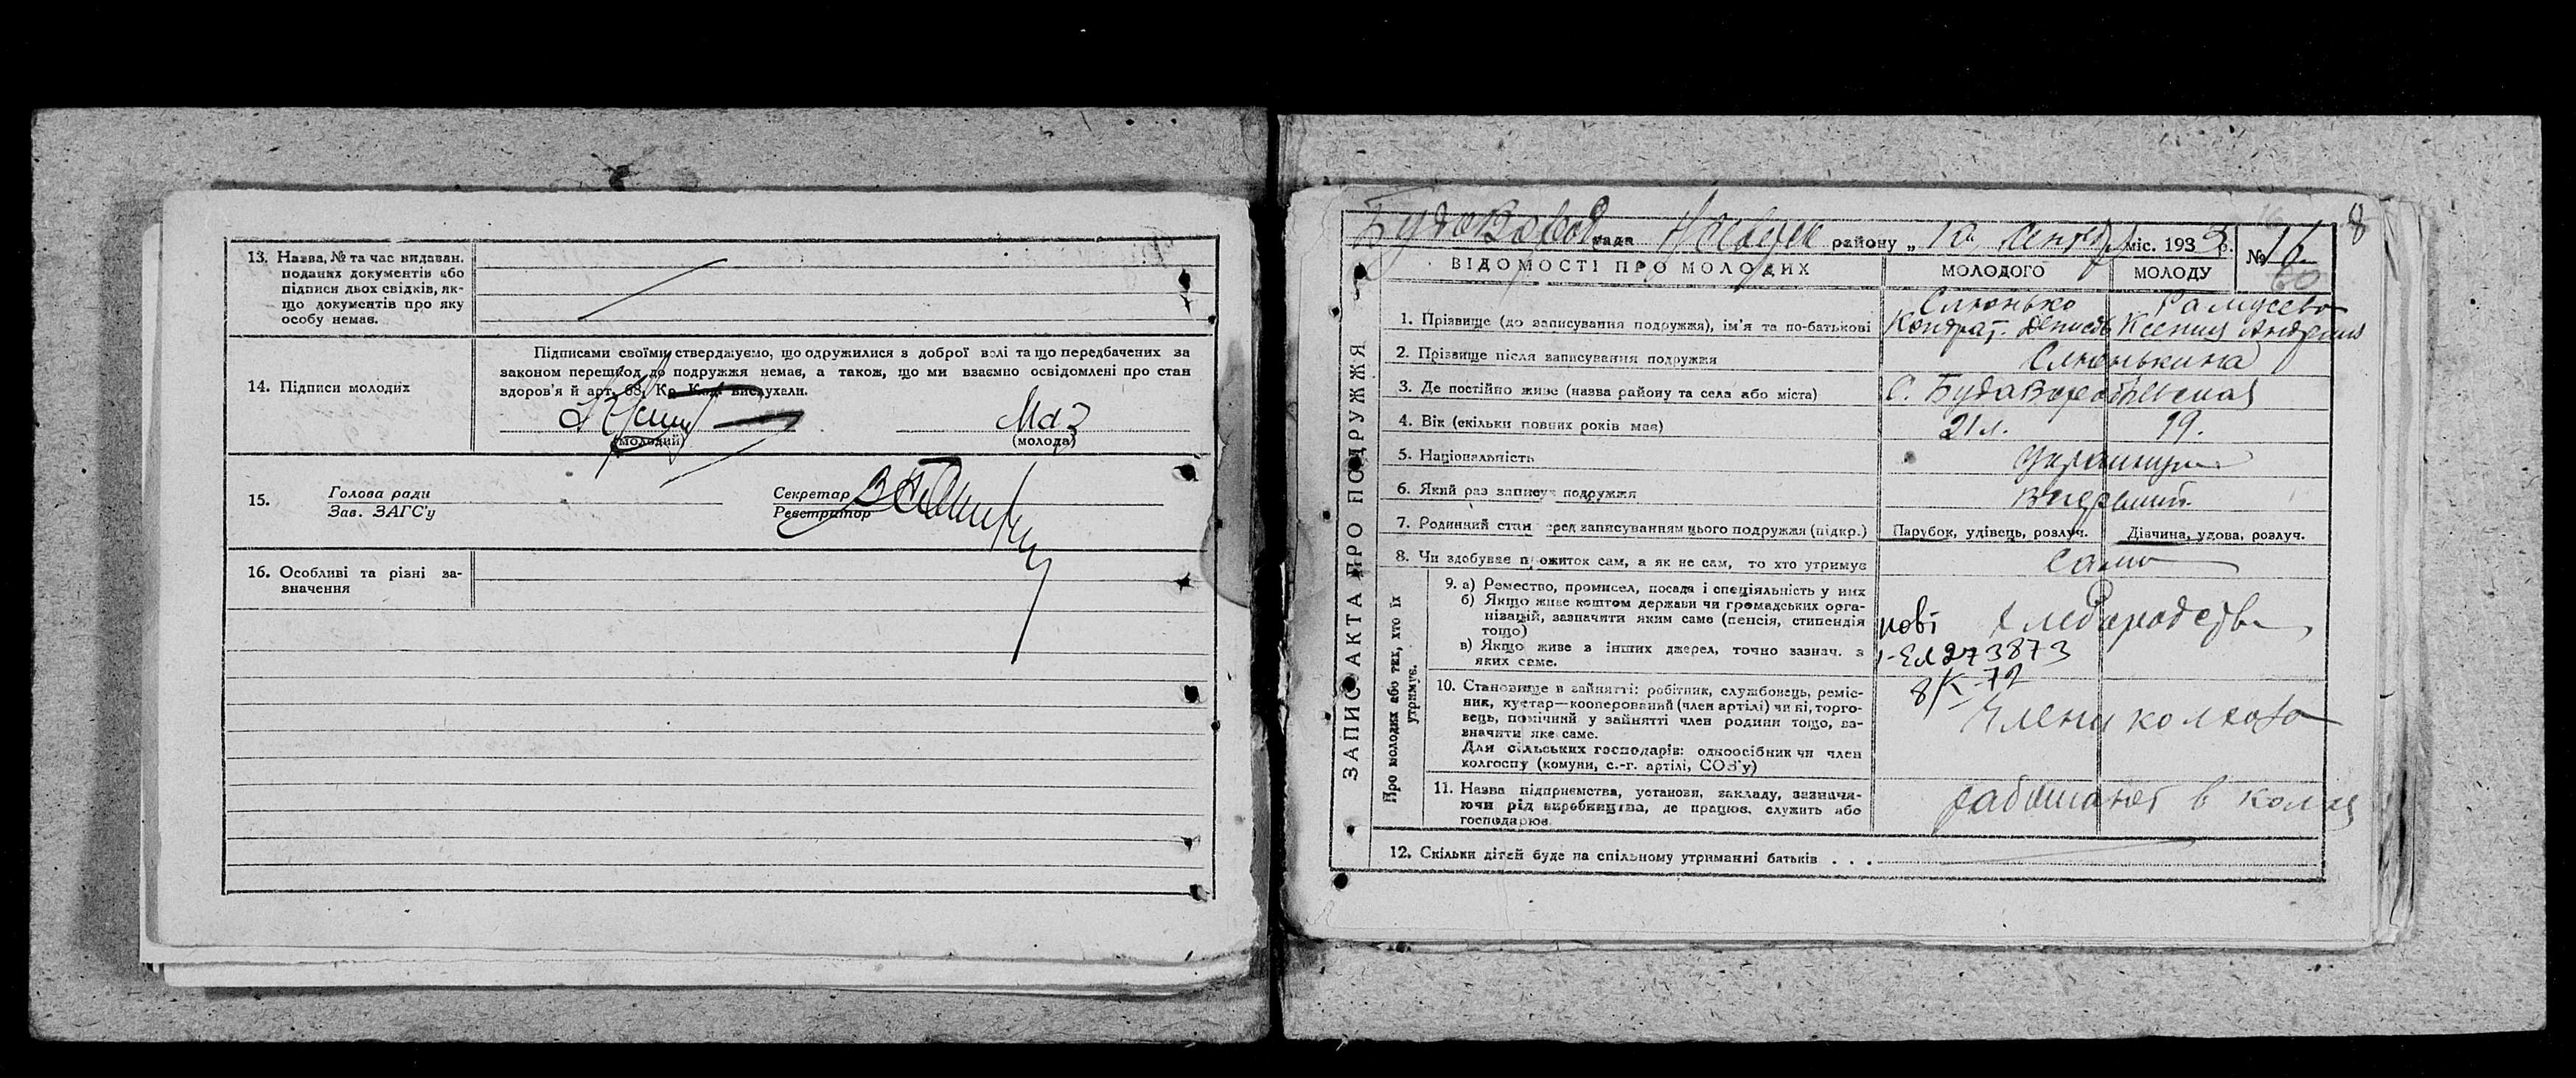 13. Назва, № та час видаван.
поданих документів або
підписи двох свідків, як-
що документів про яку
особу немає.
14. Підписи молодих
Підписами своїми стверджуємо, що одружилися з доброї волі та що передбачених за
законом перешкод до подружжя немає, а також, що ми взаємно освідомлені про стан
здоров'я й арт. 68, Кр. Код. вислухали.
Маз
(молодий)
(молода)
15.
Голова ради
Зав. ЗАГС'у
Секретар
Реєстратор
16. Особливі та різні за-
значення
8
рада району „ 10 міс. 193 р.
№ 16
60
ВІДОМОСТІ ПРО МОЛОДИХ
МОЛОДОГО
МОЛОДУ
ЗАПИС АКТА ПРО ПОДРУЖЖЯ
1. Прізвище (до записування подружжя), ім'я та по-батькові
Слюнько
Кондрат. Денисов
Ксения Андреевна
2. Прізвище після записування подружжя
Слюнькина
3. Де постійно живе (назва району та села або міста)
С. Буда Воробьевская
4. Вік (скільки повних років має)
21 л.
19.
5. Національність
6. Який раз записує подружжя
7. Родинний стан перед записуванням цього подружжя (підкр.)
Парубок, удівець, розлуч.
Дівчина, удова, розлуч.
8. Чи здобуває прожиток сам, а як не сам, то хто утримує
сами
Про молодих або тих, хто їх утримує.
9. а) Ремество, промисел, посада і спеціяльність у них
б) Якщо живе коштом держави чи громадських орга-
нізацій, зазначити яким саме (пенсія, стипендія
тощо)
в) Якщо живе з інших джерел, точно зазнач. з
яких саме.
нові
хлебородство
273873
10. Становище в зайнятті: робітник, службовець, реміс-
ник, кустар—кооперований (член артілі) чи ні, торго-
вець, помічний у зайнятті член родини тощо, за-
значити яке саме.
Для сільських господарів: одноосібник чи член
колгоспу (комуни, с.-г. артілі, СОЗ'у)
члени колхоза
11. Назва підприємства, установи, закладу, зазнача-
ючи рід виробництва, де працює, служить або
господарює
работают в колхз
12. Скільки дітей буде на спільному утриманні батьків . . .